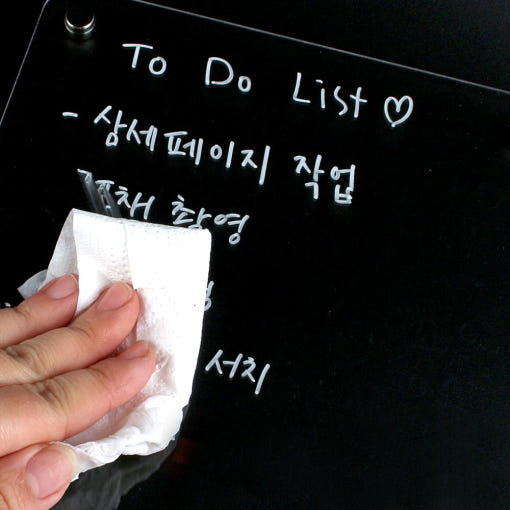 To Do List♡
- 상세페이지 작업
촬영
서치